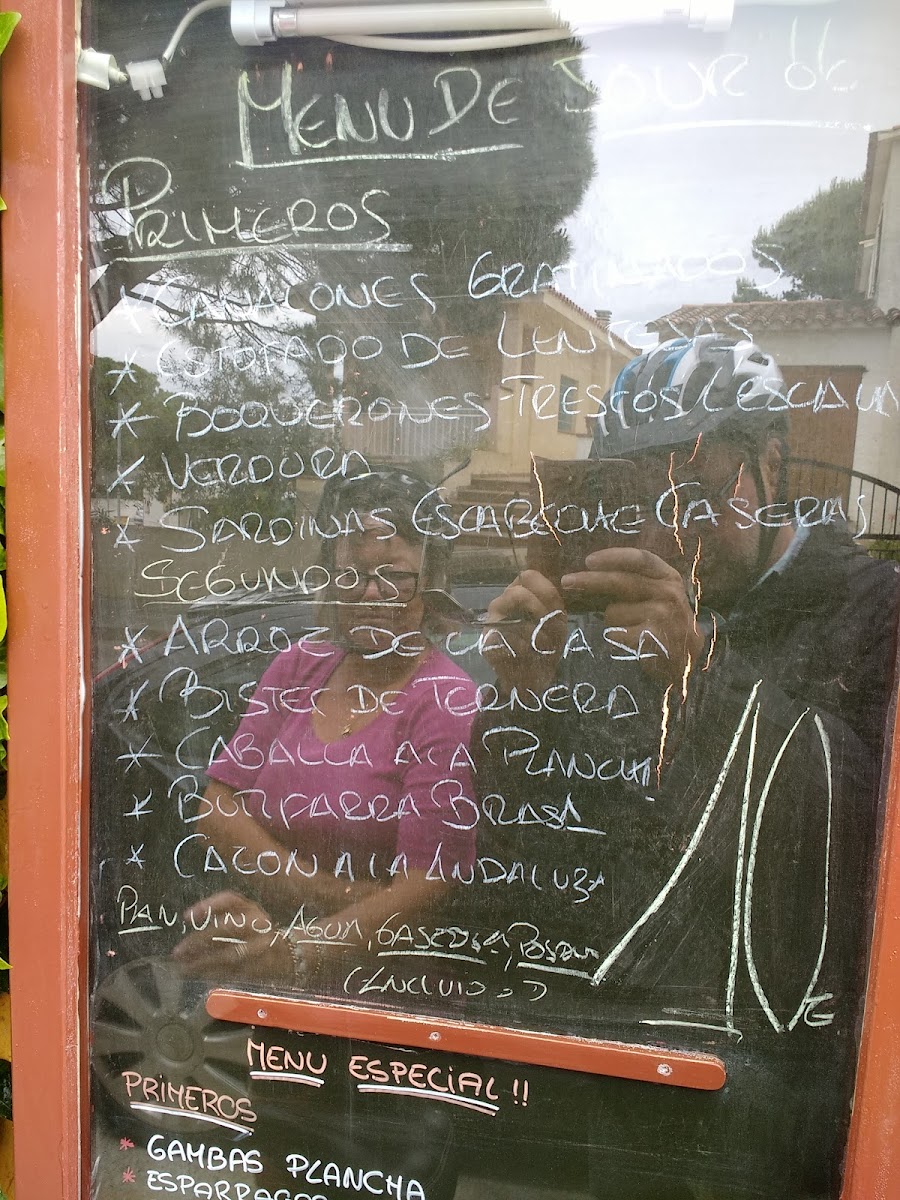 MENU DE JOUR
PRIMEROS
* CANALONES GRATINADOS
* ESTOFADO DE LENTEJAS
* BOQUERONES FRESCOS
* VERDURA
* SARDINAS ESCABECHE CASERAS
SEGUNDOS
* ARROZ DE LA CASA
* BISTEC DE TERNERA
* CABALLA A LA PLANCHA
* BUTIFARRA BRASA
* CAZON A LA ANDALUZA
PAN, VINO, AGUA, GASEOSA,
(INCLUIDO)
10€
MENU ESPECIAL !!
PRIMEROS
* GAMBAS PLANCHA
* ESPARRAGOS